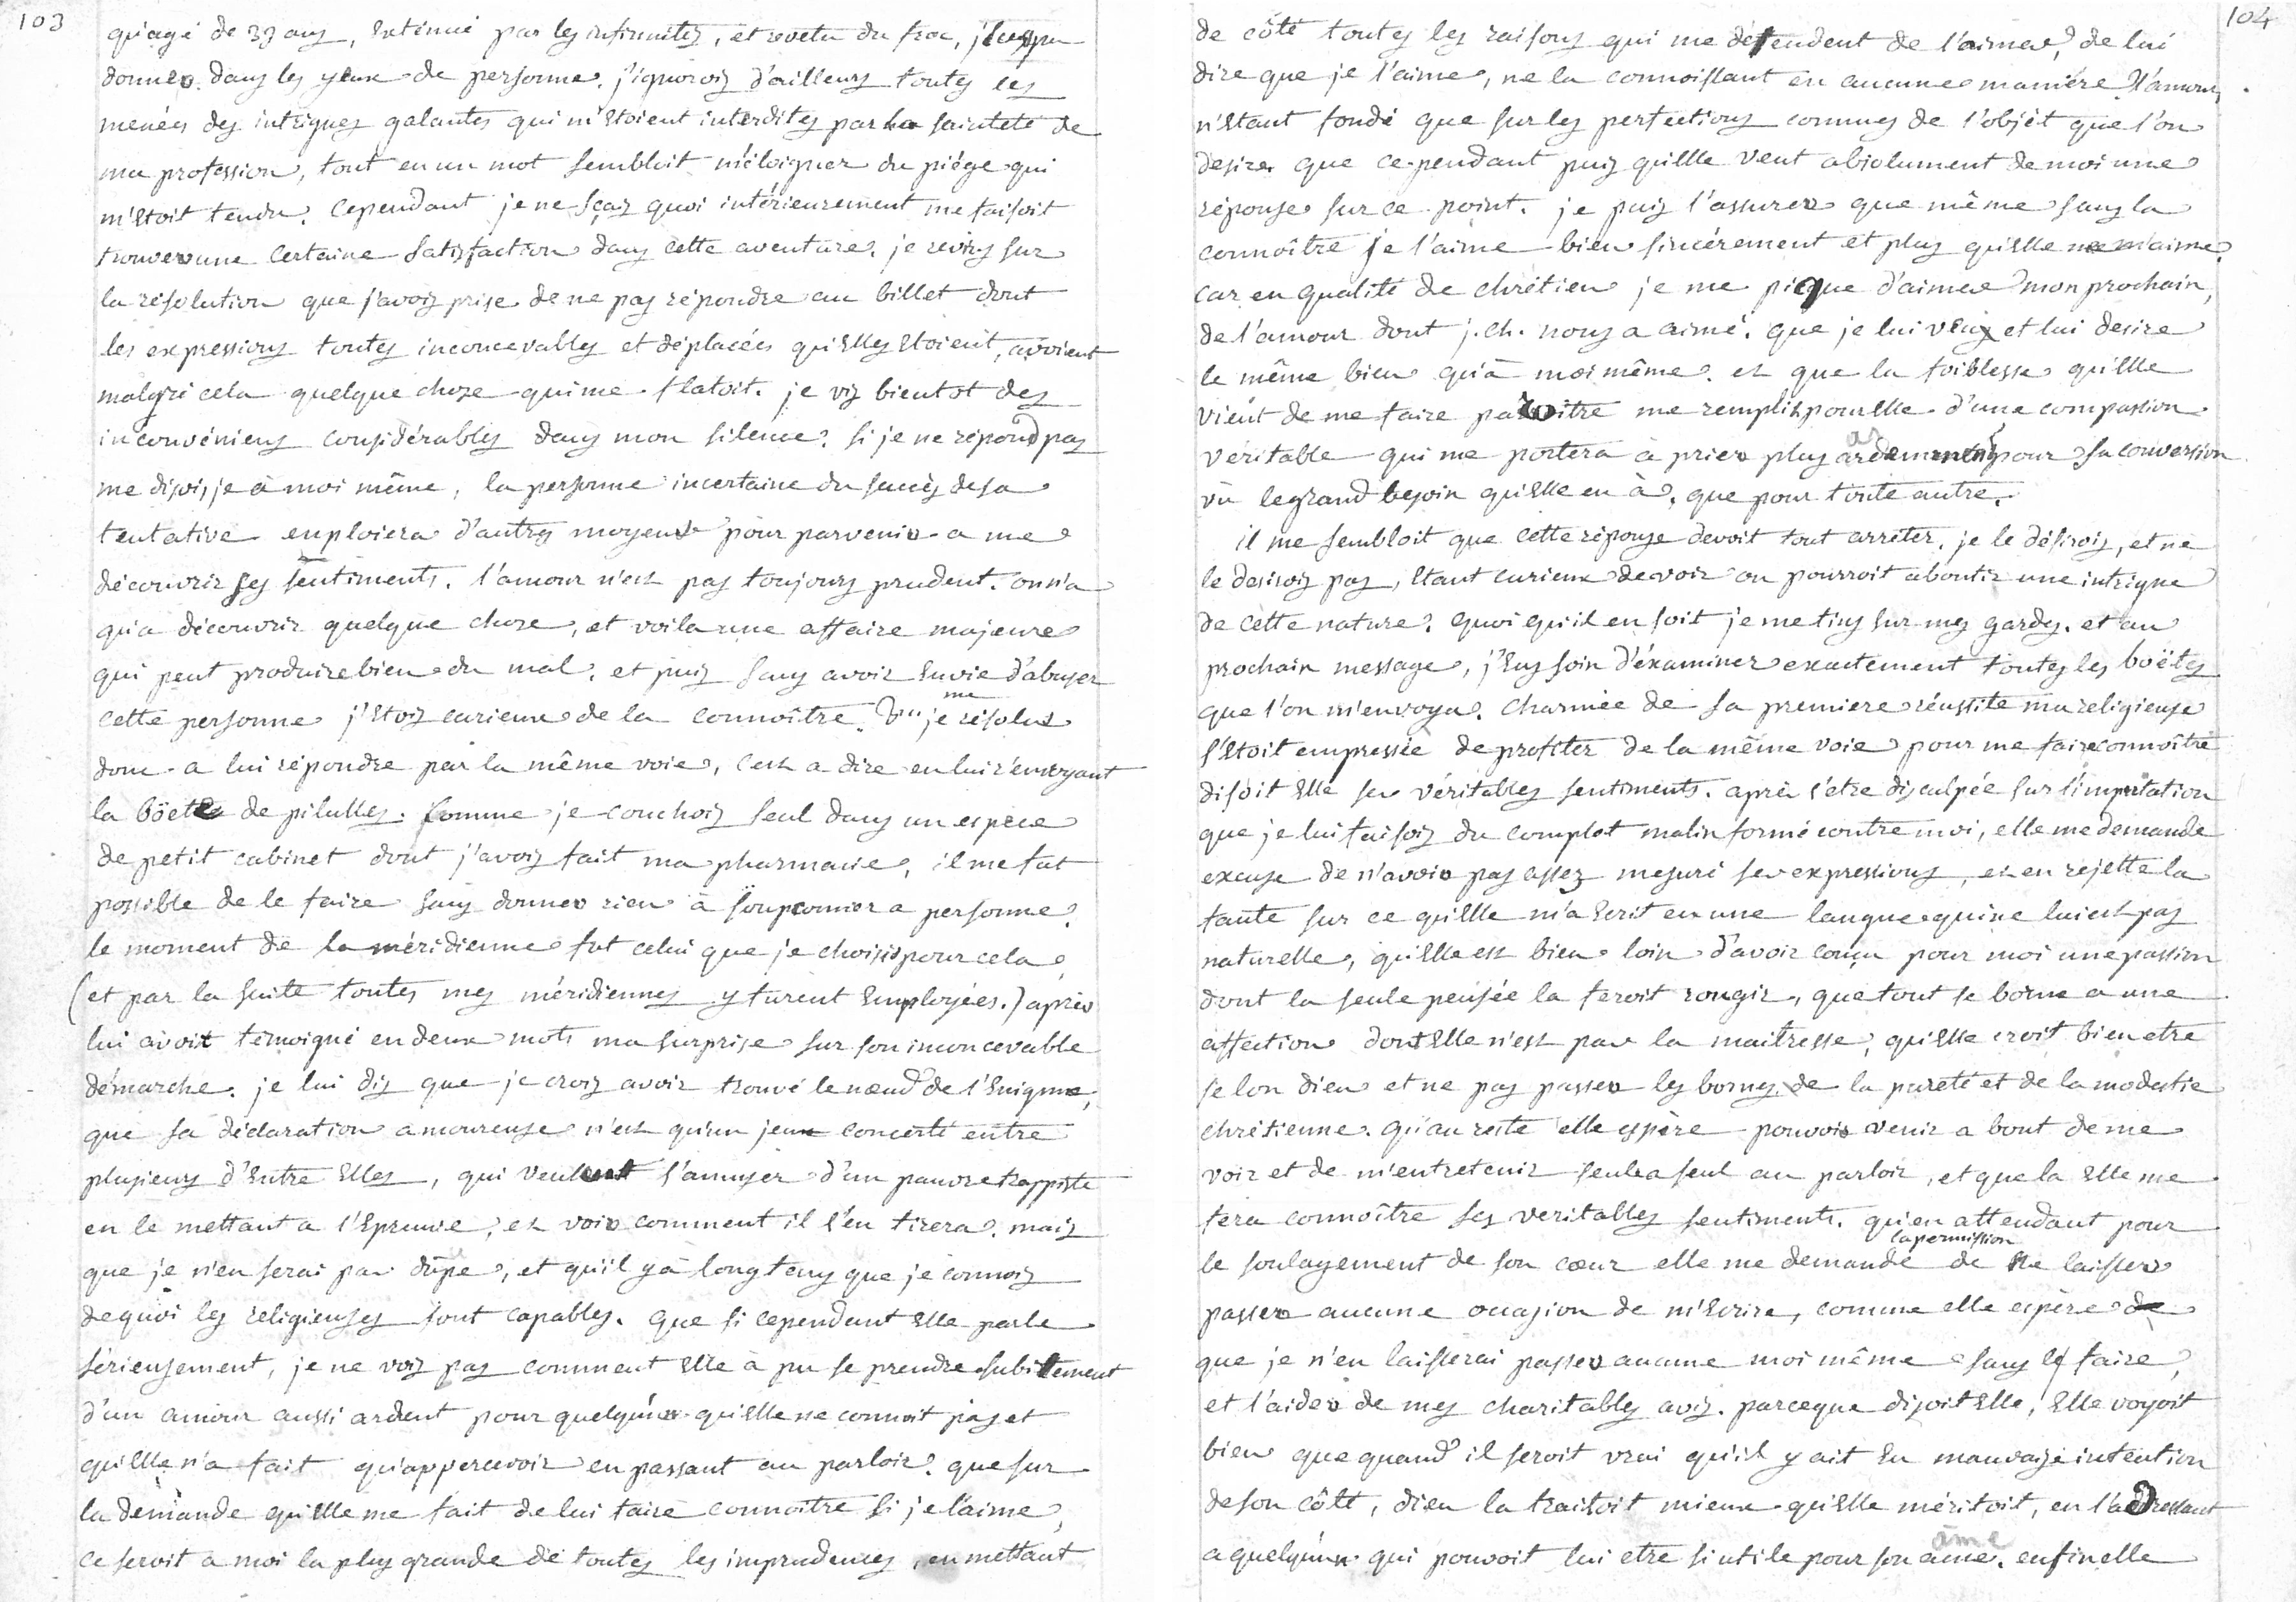 103
qu'agé de 33 ans, exténué par les infirmités, et revetu du froc, j'eus pu
donner dans les yeux de personne. j'ignorois d'ailleurs toutes les
menées des intrigues galantes qui m'etoient interdites par la sainteté de
ma profession, tout en un mot sembloit m'éloigner du piége qui
m'etoit tendu. cependant je ne sçais quoi intérieurement me faisoit
trouver une certaine satisfaction dans cette aventure. je revins sur
la résolution que j'avois prise de ne pas répondre au billet dont
les expressions toutes inconcevables et déplacées qu'elles etoient, avoient
malgré cela quelque chose qui me flatoit. je vis bientot des
inconvéniens considérables dans mon silence. si je ne répond pas
me disois je à moi même, la personne incertaine du succès de sa
tentative enploiera d'autres moyens pour parvenir a me
découvrir ses sentiments. l'amour n'est pas toujours prudent. on n'a
qu'a découvrir quelque chose, et voila une affaire majeure
qui peut produire bien du mal. et puis sans avoir envie d'abuser
cette personne j'etois curieux de la connoître. je me résolus
donc a lui répondre par la même voie, c'est a dire en lui renvoyant
la böete de pilulles. comme je couchois seul dans un espece
de petit cabinet dont j'avois fait ma pharmacie, il me fut
possible de le faire sans donner rien à soupconner a personne.
le moment de la méridienne fut celui que je choisis pour cela,
(et par la suite toutes mes méridiennes y furent employées.) après
lui avoit témoigné en deux mots ma surprise sur son inconcevable
démarche. je lui dis que je crois avoir trouvé le nœud de l'enigme,
que sa déclaration amoureuse n'est qu'un jeu concerté entre
plusieurs d'entre elles, qui veulent s'amuser d'un pauvre trappiste
en le mettant a l'epreuve, et voir comment il s'en tirera. mais
que je n'en serai pas dupe, et qu'il y a longtems que je connois
dequoi les religieuses sont capables. que si cependant elle parle
sérieusement, je ne vois pas comment elle à pu se prendre subitement
d'un amour aussi ardent pour quelqu'un qu'elle ne connoit pas et
qu'elle n'a fait qu'appercevoir en passant au parloir. que sur
la demande qu'elle me fait de lui faire connoitre si je l'aime,
ce seroit a moi la plus grande de toutes les imprudences, en mettant
104
de côté toutes les raisons qui me défendent de l'aimer, de lui
dire que je l'aime, ne la connoissant en aucune manière l'amour,
n'etant fondé que sur les perfections connues de l'objet que l'on
desire. que ce-pendant puis qu'elle veut absolument de moi une
réponse sur ce point. je puis l'assurer que même sans la
connoître je l'aime bien sincérement et plus qu'elle ne m'aime.
car en qualité de chrétien je me pique d'aimer mon prochain,
de l'amour dont j. ch. nous a aimé. que je lui veux et lui desire
le même bien qu'à moi même. et que la foiblesse qu'elle
vient de me faire paroitre me remplit pour elle d'une compassion
véritable qui me portera à prier plus ardemment pour sa conversion
vû le grand besoin qu'elle en à, que pour toute autre.
il me sembloit que cette réponse devoit tout arrêter. je le désirois, et ne
le desirois pas, etant curieux de voir ou pourroit aboutir une intrigue
de cette nature. quoi qu'il en soit je me tins sur mes gardes. et au
prochain message, j'eus soin d'éxaminer exactement toutes les boëtes
que l'on m'envoya. charmée de sa premiere réussite ma religieuse
s'etoit empressée de profiter de la même voie pour me faire connoître
disoit elle ses véritables sentiments. après s'etre disculpée sur l'imputation
que je lui faisois du complot malin formé contre moi, elle me demande
excuse de n'avoir pas assez mesuré ses expressions, et en rejette la
faute sur ce qu'elle m'a ecrit en une langue qui ne lui est pas
naturelle, qu'elle est bien loin d'avoir conçu pour moi une passion
dont la seule pensée la feroit rougir, que tout se borne a une
affection dont elle n'est pas la maitresse, qu'elle croit bien etre
selon dieu et ne pas passer les bornes de la pureté et de la modestie
chrétienne. qu'au reste elle espère pouvoir venir a bout de me
voir et de m'entretenir seul a seul au parloir, et que la elle me
fera connoître ses veritables sentiments. qu'en attendant pour
le soulagement de son cœur elle me demande la permission de ne laisser
passer aucune occasion de m'ecrire, comme elle espère
que je n'en laisserai passer aucune moi même sans le faire,
et l'aider de mes charitables avis. parceque disoit elle, elle voyoit
bien que quand il seroit vrai qu'il y ait eu mauvaise intention
de son côté, dieu la traitoit mieux qu'elle méritoit, en l'adressant
a quelqu'un qui pouvoit lui etre si utile pour son ame. enfin elle